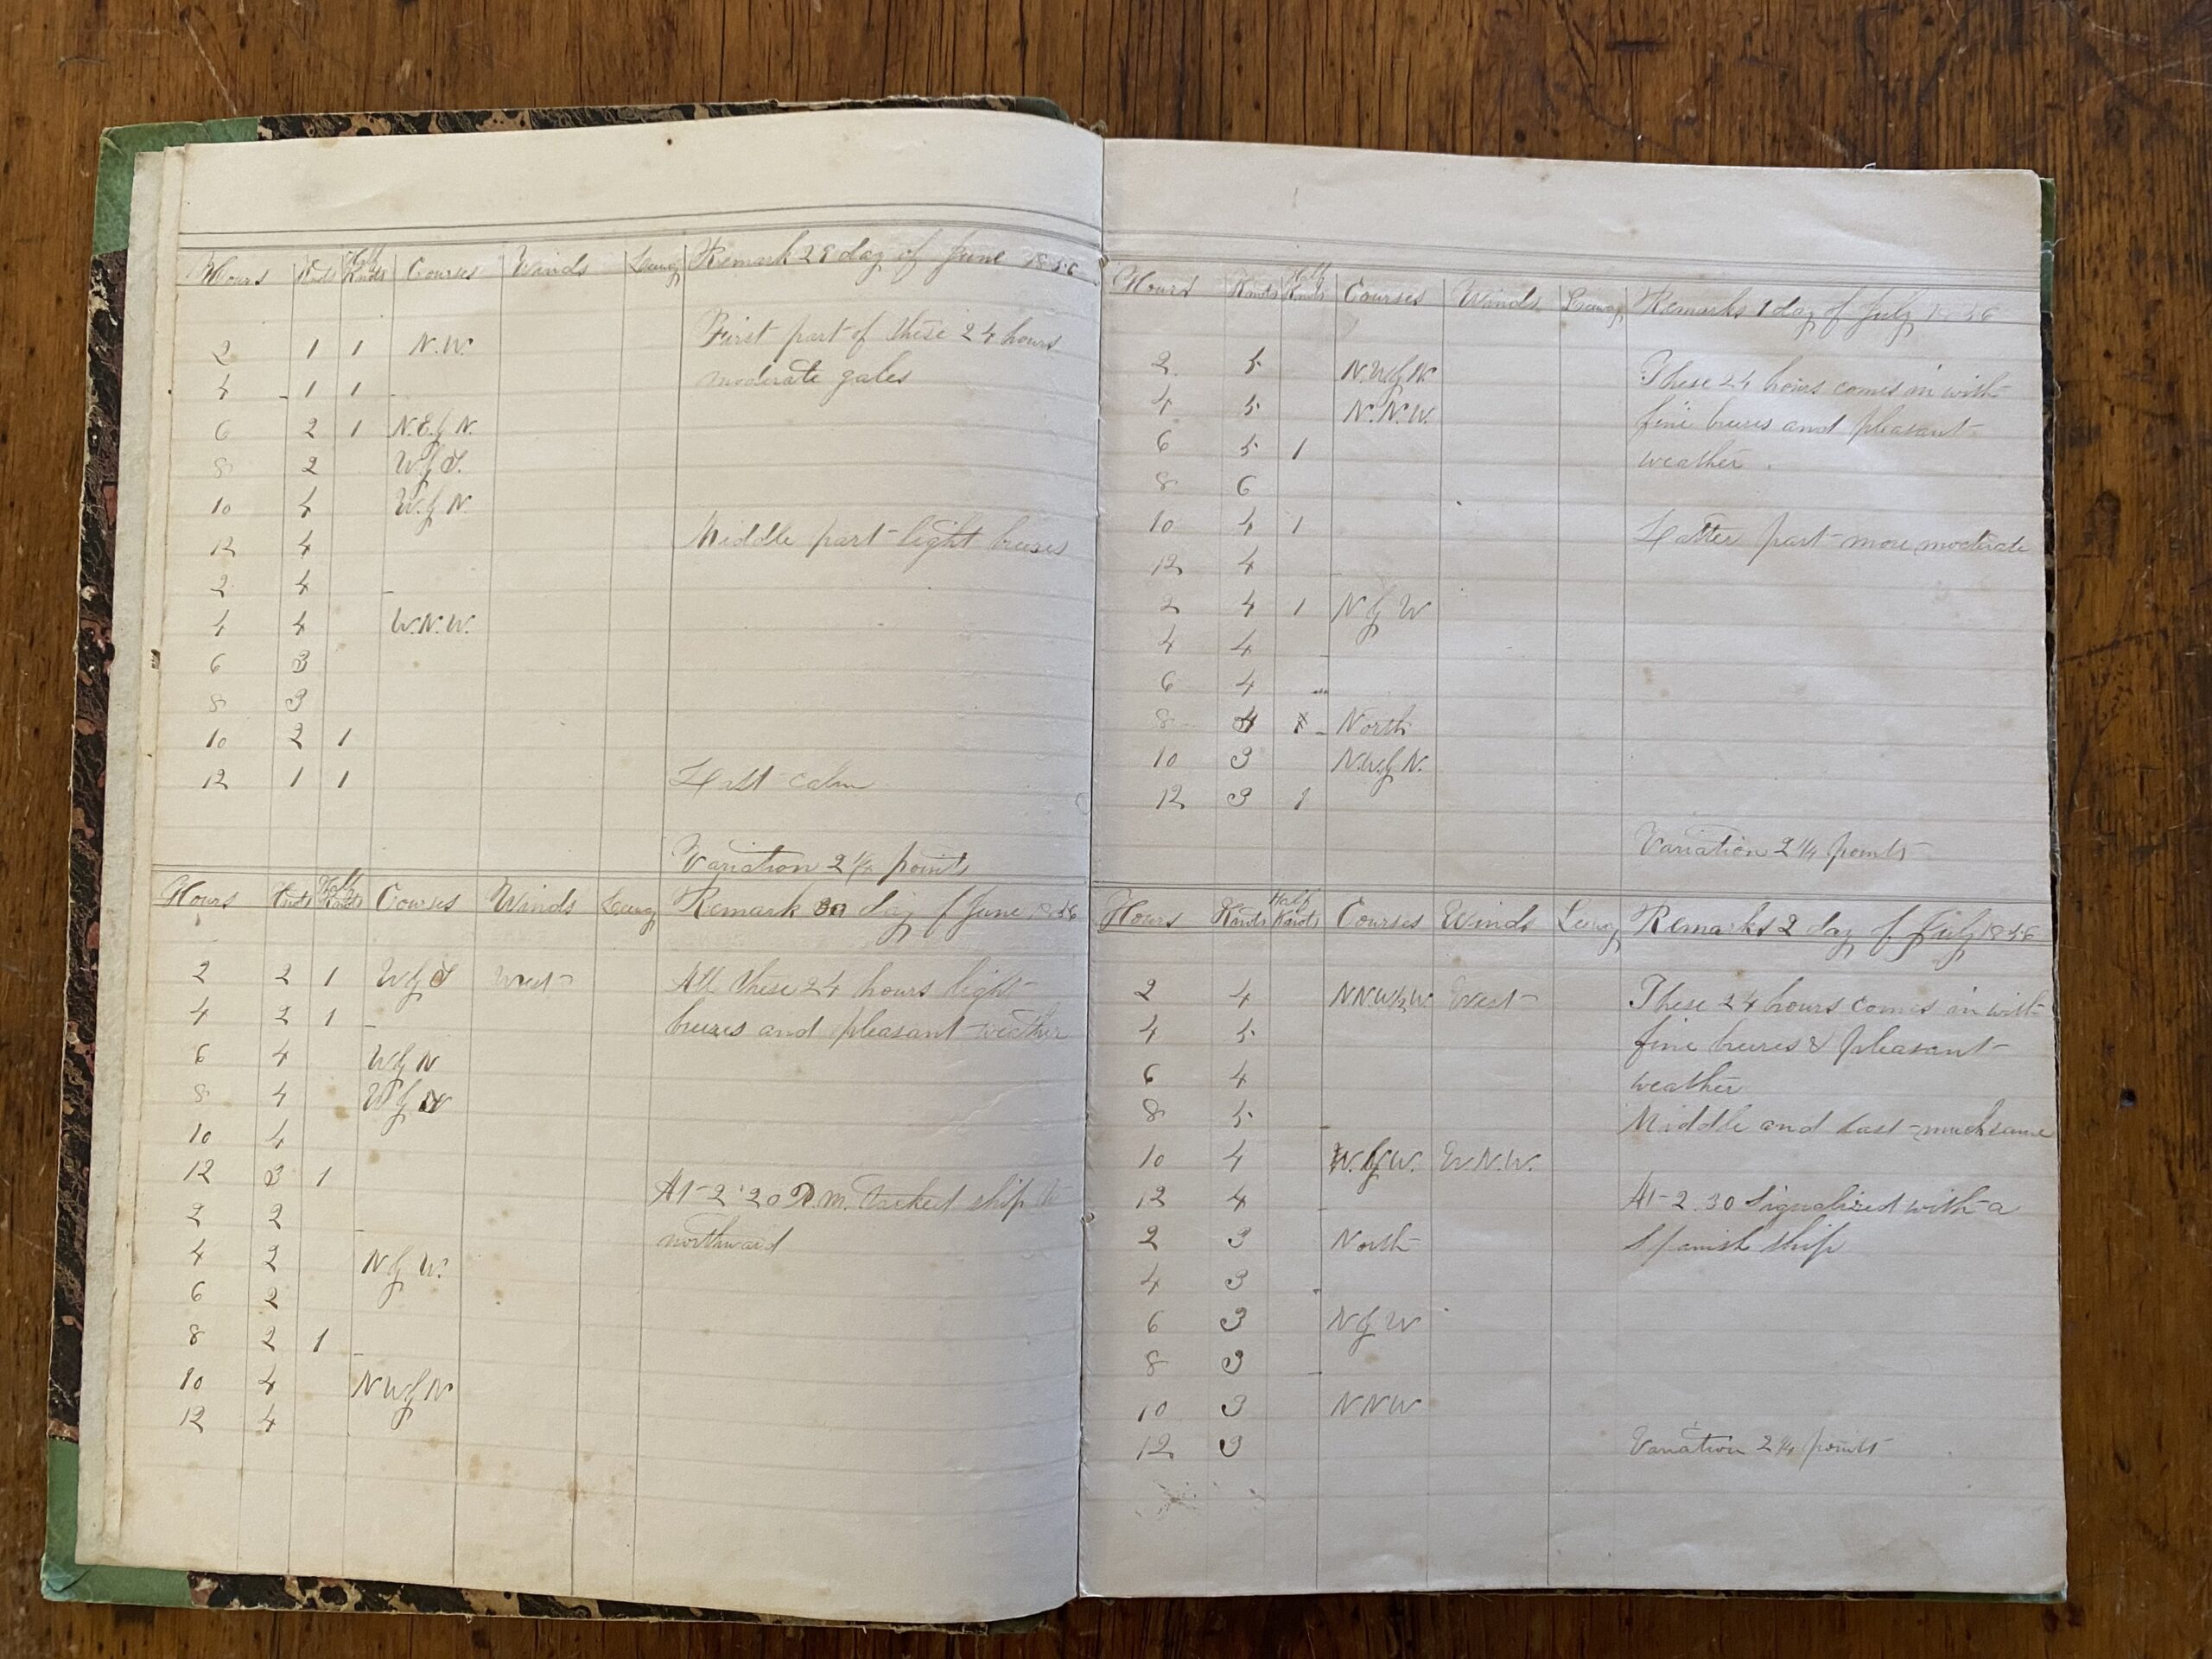 Hours Knots Half Knots Courses Winds Leeway Remark 29 day of June 1856
2 1 1 N.W. First part of these 24 hours
4 1 1 moderate gales
6 2 1 N.E.by N.
8 2 W by S.
10 4 W. by N.
12 4 Middle part light breeses
2 4
4 4 W.N.W.
6 3
8 3
10 2 1
12 1 1 Last calm
Variation 2 1/4 points
Hours Knots Half Knots Courses Winds Leeway Remark 30 day of June 1856
2 2 1 W by S West All these 24 hours light
4 2 1 breeses and pleasant weather
6 4 W by N
8 4 W by N
10 4
12 3 1 At 2.20 P.m. tacked ship to
2 2 northward
4 2 N by W.
6 2
8 2 1
10 4 N W by N
12 4
Hours Knots Half Knots Courses Winds Leeway Remarks 1 day of July 1856
2 5 N.W by N. These 24 hours comes in with
4 5 N.N.W. fine breeses and pleasant
6 5 1 weather.
8 6
10 4 1 Latter part more moderate
12 4
2 4 1 N by W
4 4
6 4
8 4 North
10 3 N.W.by N.
12 3 1
Variation 2 1/4 points
Hours Knots Half Knots Courses Winds Leeway Remarks 2 day of July 1856
2 4 N N W 1/2 W. West These 24 hours comes in with
4 5 fine breeses & pleasant
6 4 weather
8 5 Middle and last much same
10 4 by W. W.N.W.
12 4 At 2.30 Signalized with a
2 3 North Spanish ship
4 3
6 3 N by W
8 3
10 3 N N W
12 3 Variation 2 1/4 points